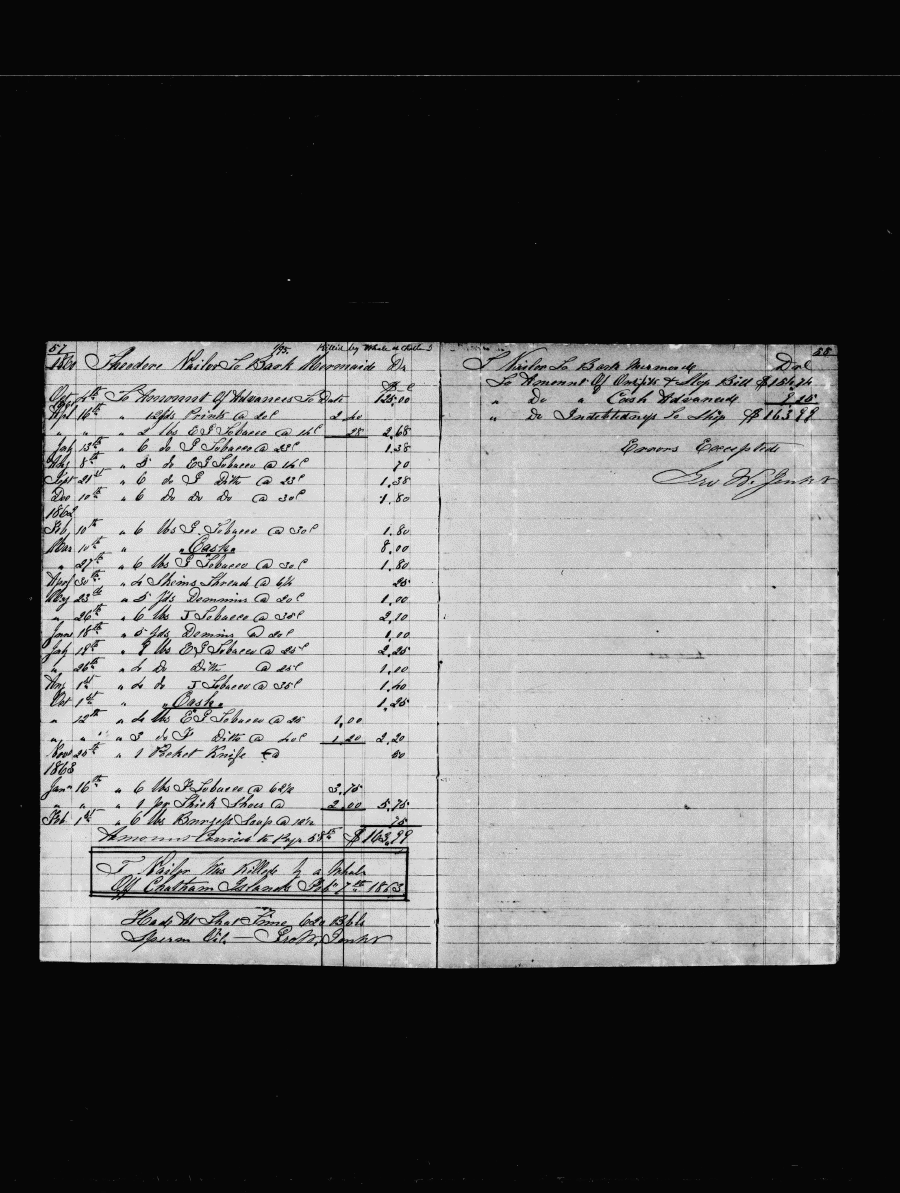 57
1/95. Killed by Whale at Chatm I
1860 Theodore Nailor To Bark Mermaid Dr
$ c
Oct 4th To Amount Of Advances To Date 125,00
1861
Apl 14th " 12yds Prints @ 20c 2,40
" " " 2 lbs E S Tobacco @ 14c 28 2,68
July 13th " 6 do S Tobacco @ 23c 1,38
Aug 8th " 5 do E S Tobacco @ 14c 70
Sept 21st " 6 do S Ditto @ 23c 1,38
Dec 10th " 6 Do Do Do @ 30c 1,80
1862
Feb 10th " 6 lbs S Tobacco @ 30c 1.80
Mar 10th " "Cash" 8,00
" 27th " 6 lbs S Tobacco @ 30c 1,80
Apl 30th " 4 Skeins Thread @ 6¼ 25
May 23rd " 5 Yds Demmins @ 20c 1,00
" 26th " 6 lbs J Tobacco @ 35c 2,10
June 18th " 5 yds Demins @ 20c 1,00
July 19th " 9 lbs E S Tobacco @ 25c 2,25
" 26th " 4 Do Ditto @ 25c 1,00
Aug 1st " 4 do J Tobacco @ 35c 1,40
Oct 1st " "Cash" 1,25
" 12th " 4 lbs E S Tobacco @ 25 1,00
" " " 3 do F Ditto @ 40c 1,20 2,20
Nov 25th " 1 Pocket Knife @ 50
1863
Jan 16th " 6 lbs F Tobacco @ 62½ 3,75
" " " 1 pr Thick Shoes @ 2,00 5,75
Feb 1st " 6 lbs Burgess Soap @ 12½ 75
Amount Carried to Page 58th $163,99
T Nailor Was Killed by a Whale
Off Chatham Islands Feb 7th 1863
Had At That Time 620 Bbls
Sperm Oil — Geo W. Jenkr
58
T Nailor To Bark Mermaid Dr c
To Amount Of Outfits & Slop Bill $154,74
" Do " Cash Advanced 9,25
" Do Indebtedness To Ship $163,99
Errors Excepted
Geo W. Jenkr